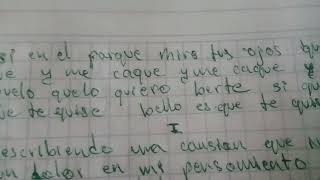 si en el parque miro tus ojos que
ue y me caque y me caque
vuelo quelo quiero berte si que
que te quise bello es que te quise
I
escribiendo una cansion que
un dolor en mi pensamiento